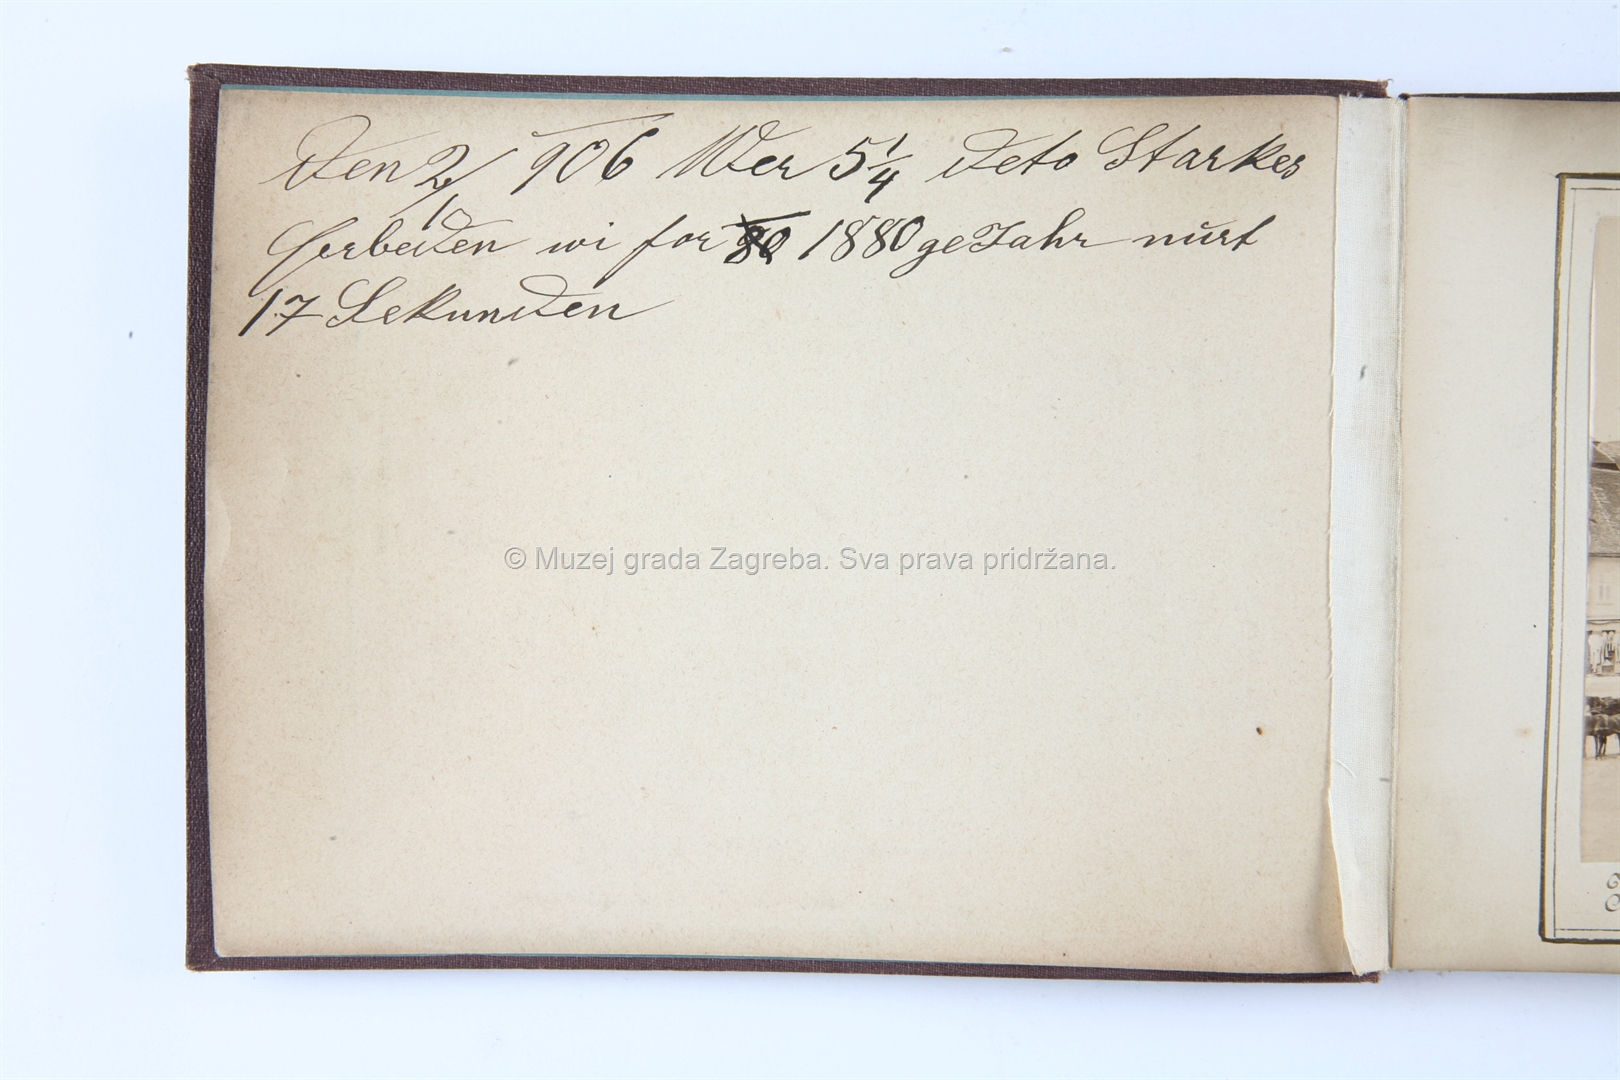 Den 2/10 906 Wer 5 1/4 deto Starkes
Erbeden wi for 80 1880 ge Jahr nurt
17 Sekunden
© Muzej grada Zagreba. Sva prava pridržana.